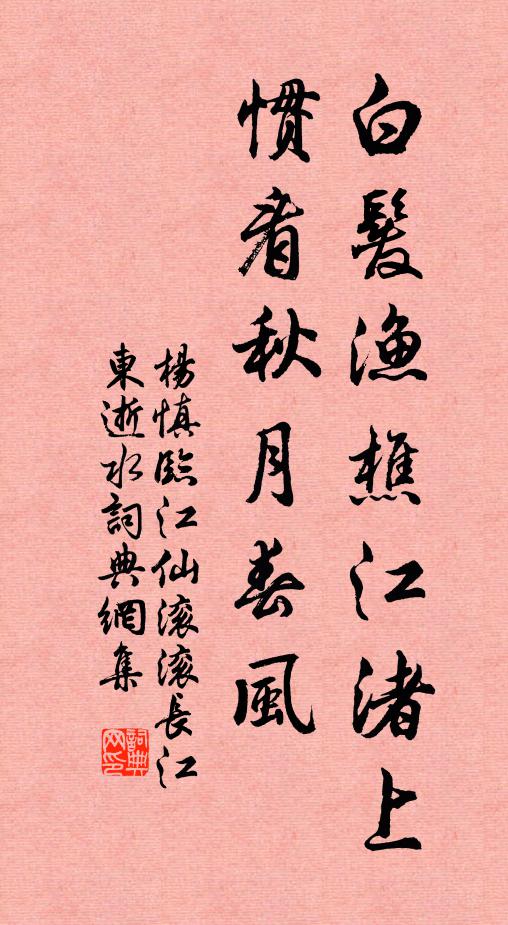 白髮漁樵江渚上
慣看秋月春風
楊慎臨江仙滚滚長江
東逝水詞典網集
詞典网印